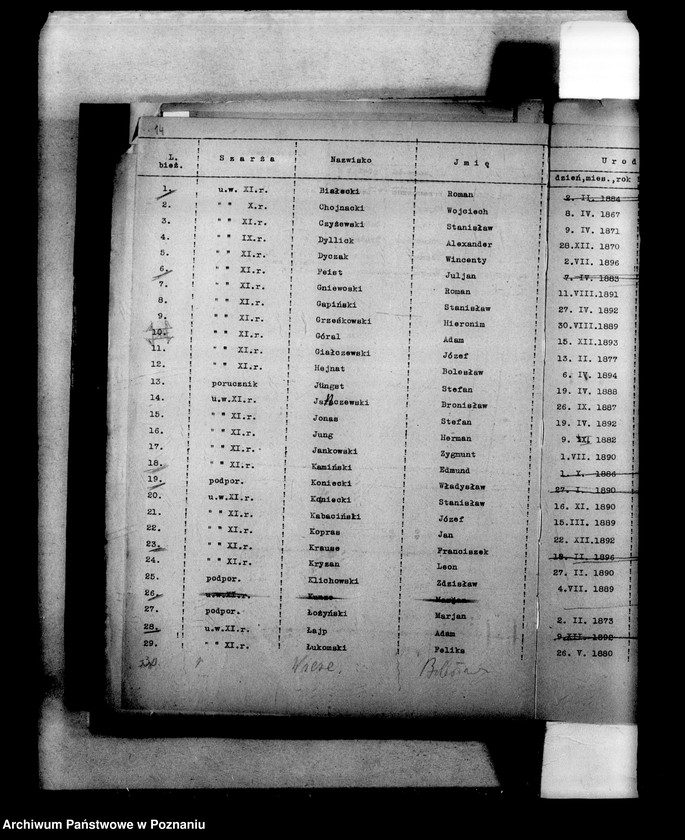 14
L. bież. Szarża Nazwisko Jmię Urod
dzień,mies.,rok
1. u.w. XI.r. Białecki Roman 2. II. 1884
2. " " X.r. Chojnacki Wojciech 8. IV. 1867
3. " " XI.r. Czyżewski Stanisław 9. IV. 1871
4. " " IX.r. Dyllick Alexander 28.XII. 1870
5. " " XI.r. Dyczak Wincenty 2.VII. 1896
6. " " XI.r. Feist Juljan 7. IV. 1883
7. " " XI.r. Gniewoski Roman 11.VIII.1891
8. " " XI.r. Gapiński Stanisław 27. IV. 1892
9. " " XI.r. Grześkowski Hieronim 30.VIII.1889
10. " " XI.r. Góral Adam 15. XII.1893
11. " " XI.r. Giałczewski Józef 13. II. 1877
12. " " XI.r. Hejnat Bolesław 6. IV. 1894
13. porucznik Jüngst Stefan 19. IV. 1888
14. u.w.XI.r. Janczewski Bronisław 26. IX. 1887
15. " " XI.r. Jonas Stefan 19. IV. 1892
16. " " XI.r. Jung Herman 9. XI 1882
17. " " XI.r. Jankowski Zygmunt 1.VII. 1890
18. " " XI.r. Kamiński Edmund 1. X. 1886
19. podpor. Koniecki Władysław 27. I. 1890
20. u.w.XI.r. Koniecki Stanisław 16. XI. 1890
21. " " XI.r. Kabaciński Józef 15.III. 1889
22. " " XI.r. Kopras Jan 22. XII.1892
23. " " XI.r. Krause Franciszek 18. II. 1896
24. " " XI.r. Kryzan Leon 27. II. 1890
25. podpor. Klichowski Zdzisław 4.VII. 1889
26. u.w.XI.r. Marjan
27. podpor. Łożyński Marjan 2. II. 1873
28. u.w.XI.r. Łajp Adam 9.XII. 1892
29. " " XI.r. Łukomski Feliks 26. V. 1880
Archiwum Państwowe w Poznaniu